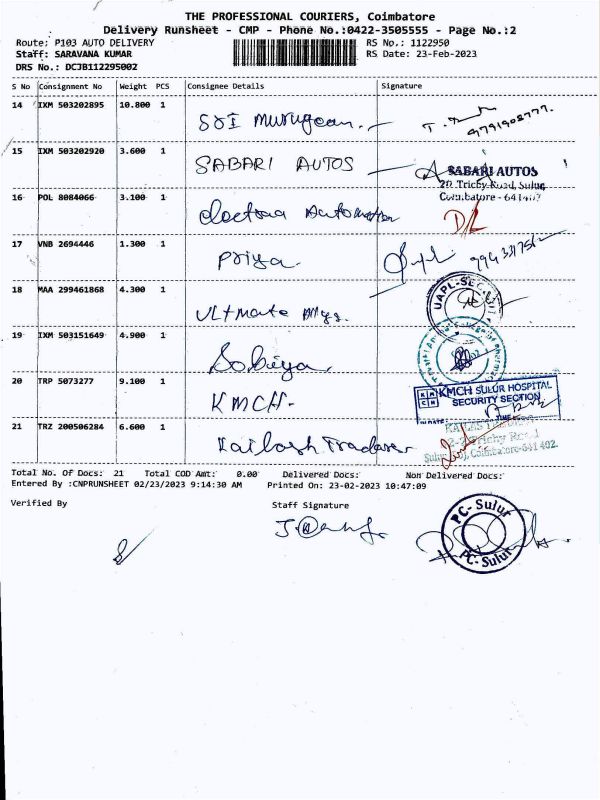 THE PROFESSIONAL COURIERS, Coimbatore
Delivery Runsheet - CMP - Phone No.:0422-3505555 - Page No.:2
Route: P103 AUTO DELIVERY RS No.: 1122950
Staff: SARAVANA KUMAR RS Date: 23-Feb-2023
DRS No.: DCJB112295002
S No Consignment No Weight PCS Consignee Details Signature
14 IXM 503202895 10.800 1 SRI Murugean. 9791908777.
15 IXM 503202920 3.600 1 SABARI AUTOS SABARI AUTOS
Trichy Road, Sulur
Coimbatore - 641402
16 POL 8084066 3.100 1 electra Automation
17 VNB 2694446 1.300 1 Priya.
18 MAA 299461868 4.300 1 ULtmate UAPL-SECURITY
19 IXM 503151649 4.900 1 Sobiya
20 TRP 5073277 9.100 1 KMCH- KMCH SULUR HOSPITAL
SECURITY SECTION
21 TRZ 200506284 6.600 1 Kailash Traders KAILASH TRADERS
Trichy Road
Coimbatore-641 402.
Total No. Of Docs: 21 Total COD Amt: 0.00 Delivered Docs: Non Delivered Docs:
Entered By :CNPRUNSHEET 02/23/2023 9:14:30 AM Printed On: 23-02-2023 10:47:09
Verified By Staff Signature
PC- Sulur
PC- Sulur